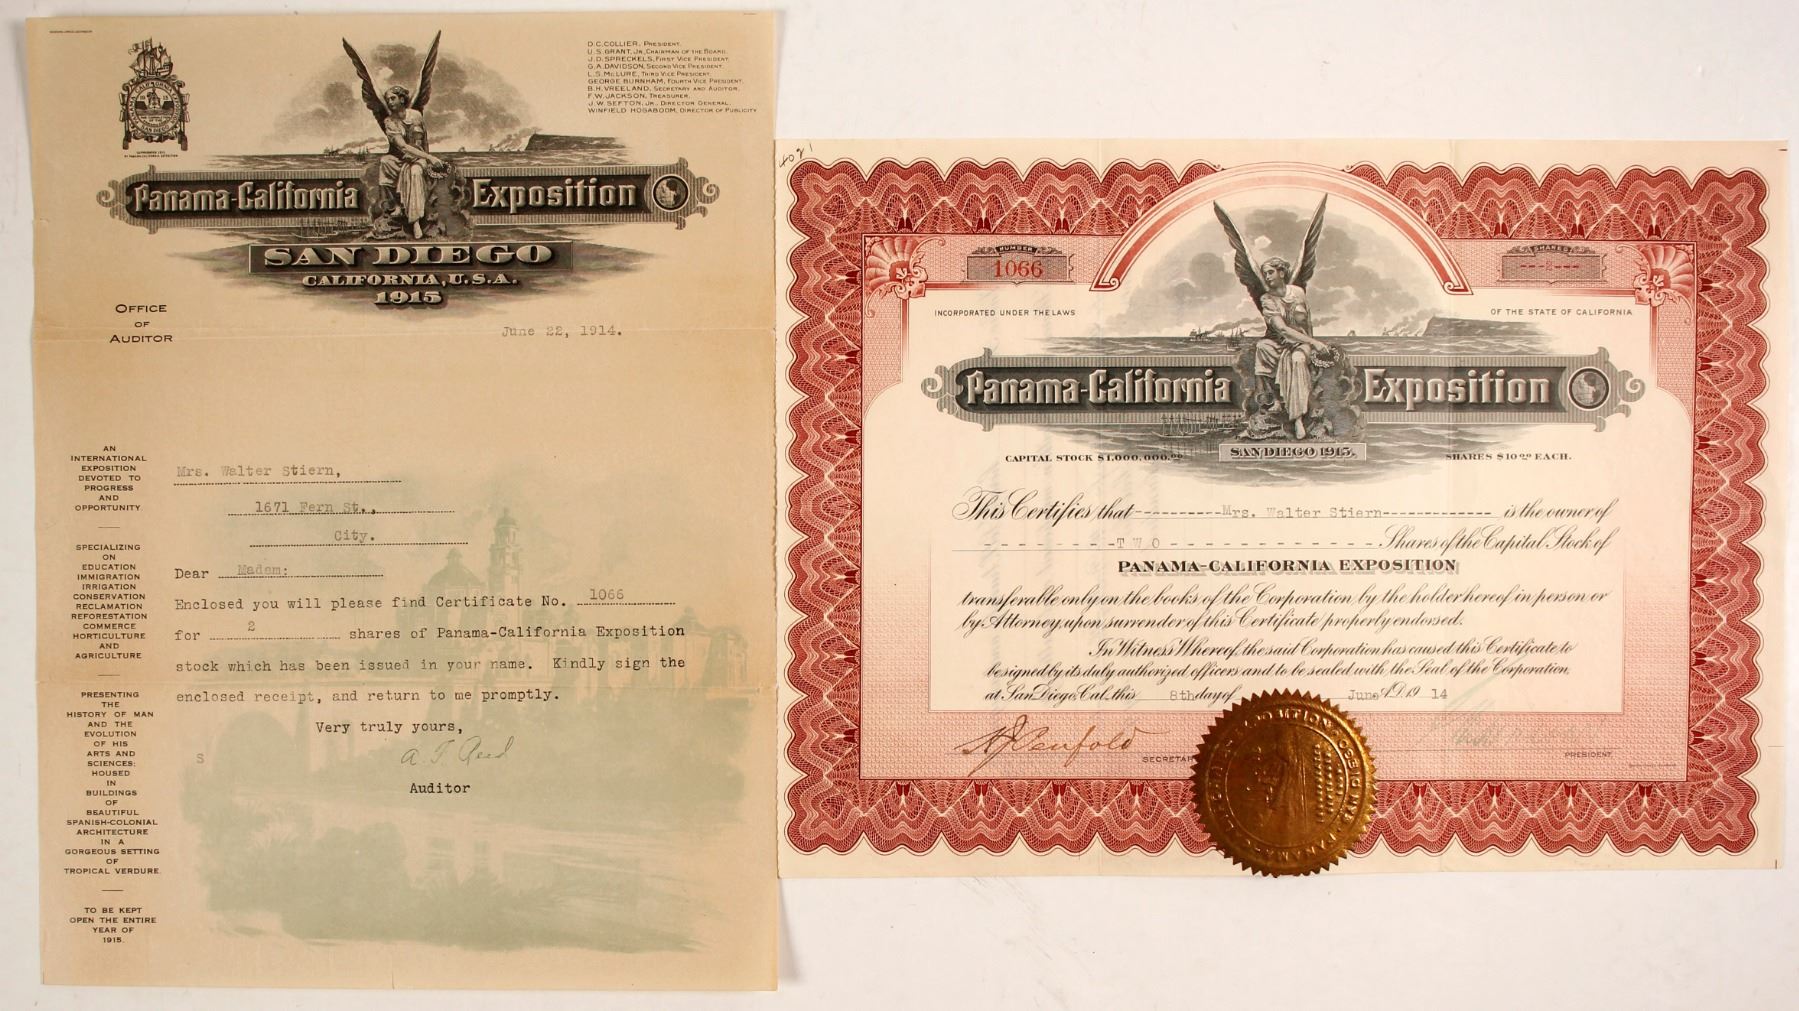 D.C. COLLIER, PRESIDENT.
U.S. GRANT, JR., CHAIRMAN OF THE BOARD.
J.D. SPRECKELS, FIRST VICE PRESIDENT.
G.A. DAVIDSON, SECOND VICE PRESIDENT.
L.S. McLURE, THIRD VICE PRESIDENT.
GEORGE BURNHAM, FOURTH VICE PRESIDENT.
B.H. VREELAND, SECRETARY AND AUDITOR.
F.W. JACKSON, TREASURER.
J.W. SEFTON, JR., DIRECTOR GENERAL.
WINFIELD HOGABOOM, DIRECTOR OF PUBLICITY
Panama-California Exposition
SAN DIEGO
CALIFORNIA, U.S.A.
1915
OFFICE
OF
AUDITOR
June 22, 1914.
AN
INTERNATIONAL
EXPOSITION
DEVOTED TO
PROGRESS
AND
OPPORTUNITY
SPECIALIZING
ON
EDUCATION
IMMIGRATION
IRRIGATION
CONSERVATION
RECLAMATION
REFORESTATION
COMMERCE
HORTICULTURE
AND
AGRICULTURE
PRESENTING
THE
HISTORY OF MAN
AND THE
EVOLUTION
OF HIS
ARTS AND
SCIENCES;
HOUSED
IN
BUILDINGS
OF
BEAUTIFUL
SPANISH-COLONIAL
ARCHITECTURE
IN A
GORGEOUS SETTING
OF
TROPICAL VERDURE.
TO BE KEPT
OPEN THE ENTIRE
YEAR OF
1915.
Mrs. Walter Stiern,
1671 Fern St.,
City.
Dear Madam:
Enclosed you will please find Certificate No. 1066
for 2 shares of Panama-California Exposition
stock which has been issued in your name. Kindly sign the
enclosed receipt, and return to me promptly.
Very truly yours,
A. T. Reed
S
Auditor
4021
NUMBER
1066
SHARES
---2---
INCORPORATED UNDER THE LAWS OF THE STATE OF CALIFORNIA
Panama-California Exposition
CAPITAL STOCK $1,000,000.00 SAN DIEGO 1915. SHARES $10.00 EACH.
This Certifies that ----------Mrs. Walter Stiern------------- is the owner of
- - - - - - - - -T W O - - - - - - - - - - - - - Shares of the Capital Stock of
PANAMA-CALIFORNIA EXPOSITION
transferable only on the books of the Corporation by the holder hereof in person or
by Attorney upon surrender of this Certificate properly endorsed.
In Witness Whereof, the said Corporation has caused this Certificate to
be signed by its duly authorized officers and to be sealed with the Seal of the Corporation,
at San Diego, Cal. this 8th day of June A.D. 19 14
Penfold
SECRETAR
PRESIDENT